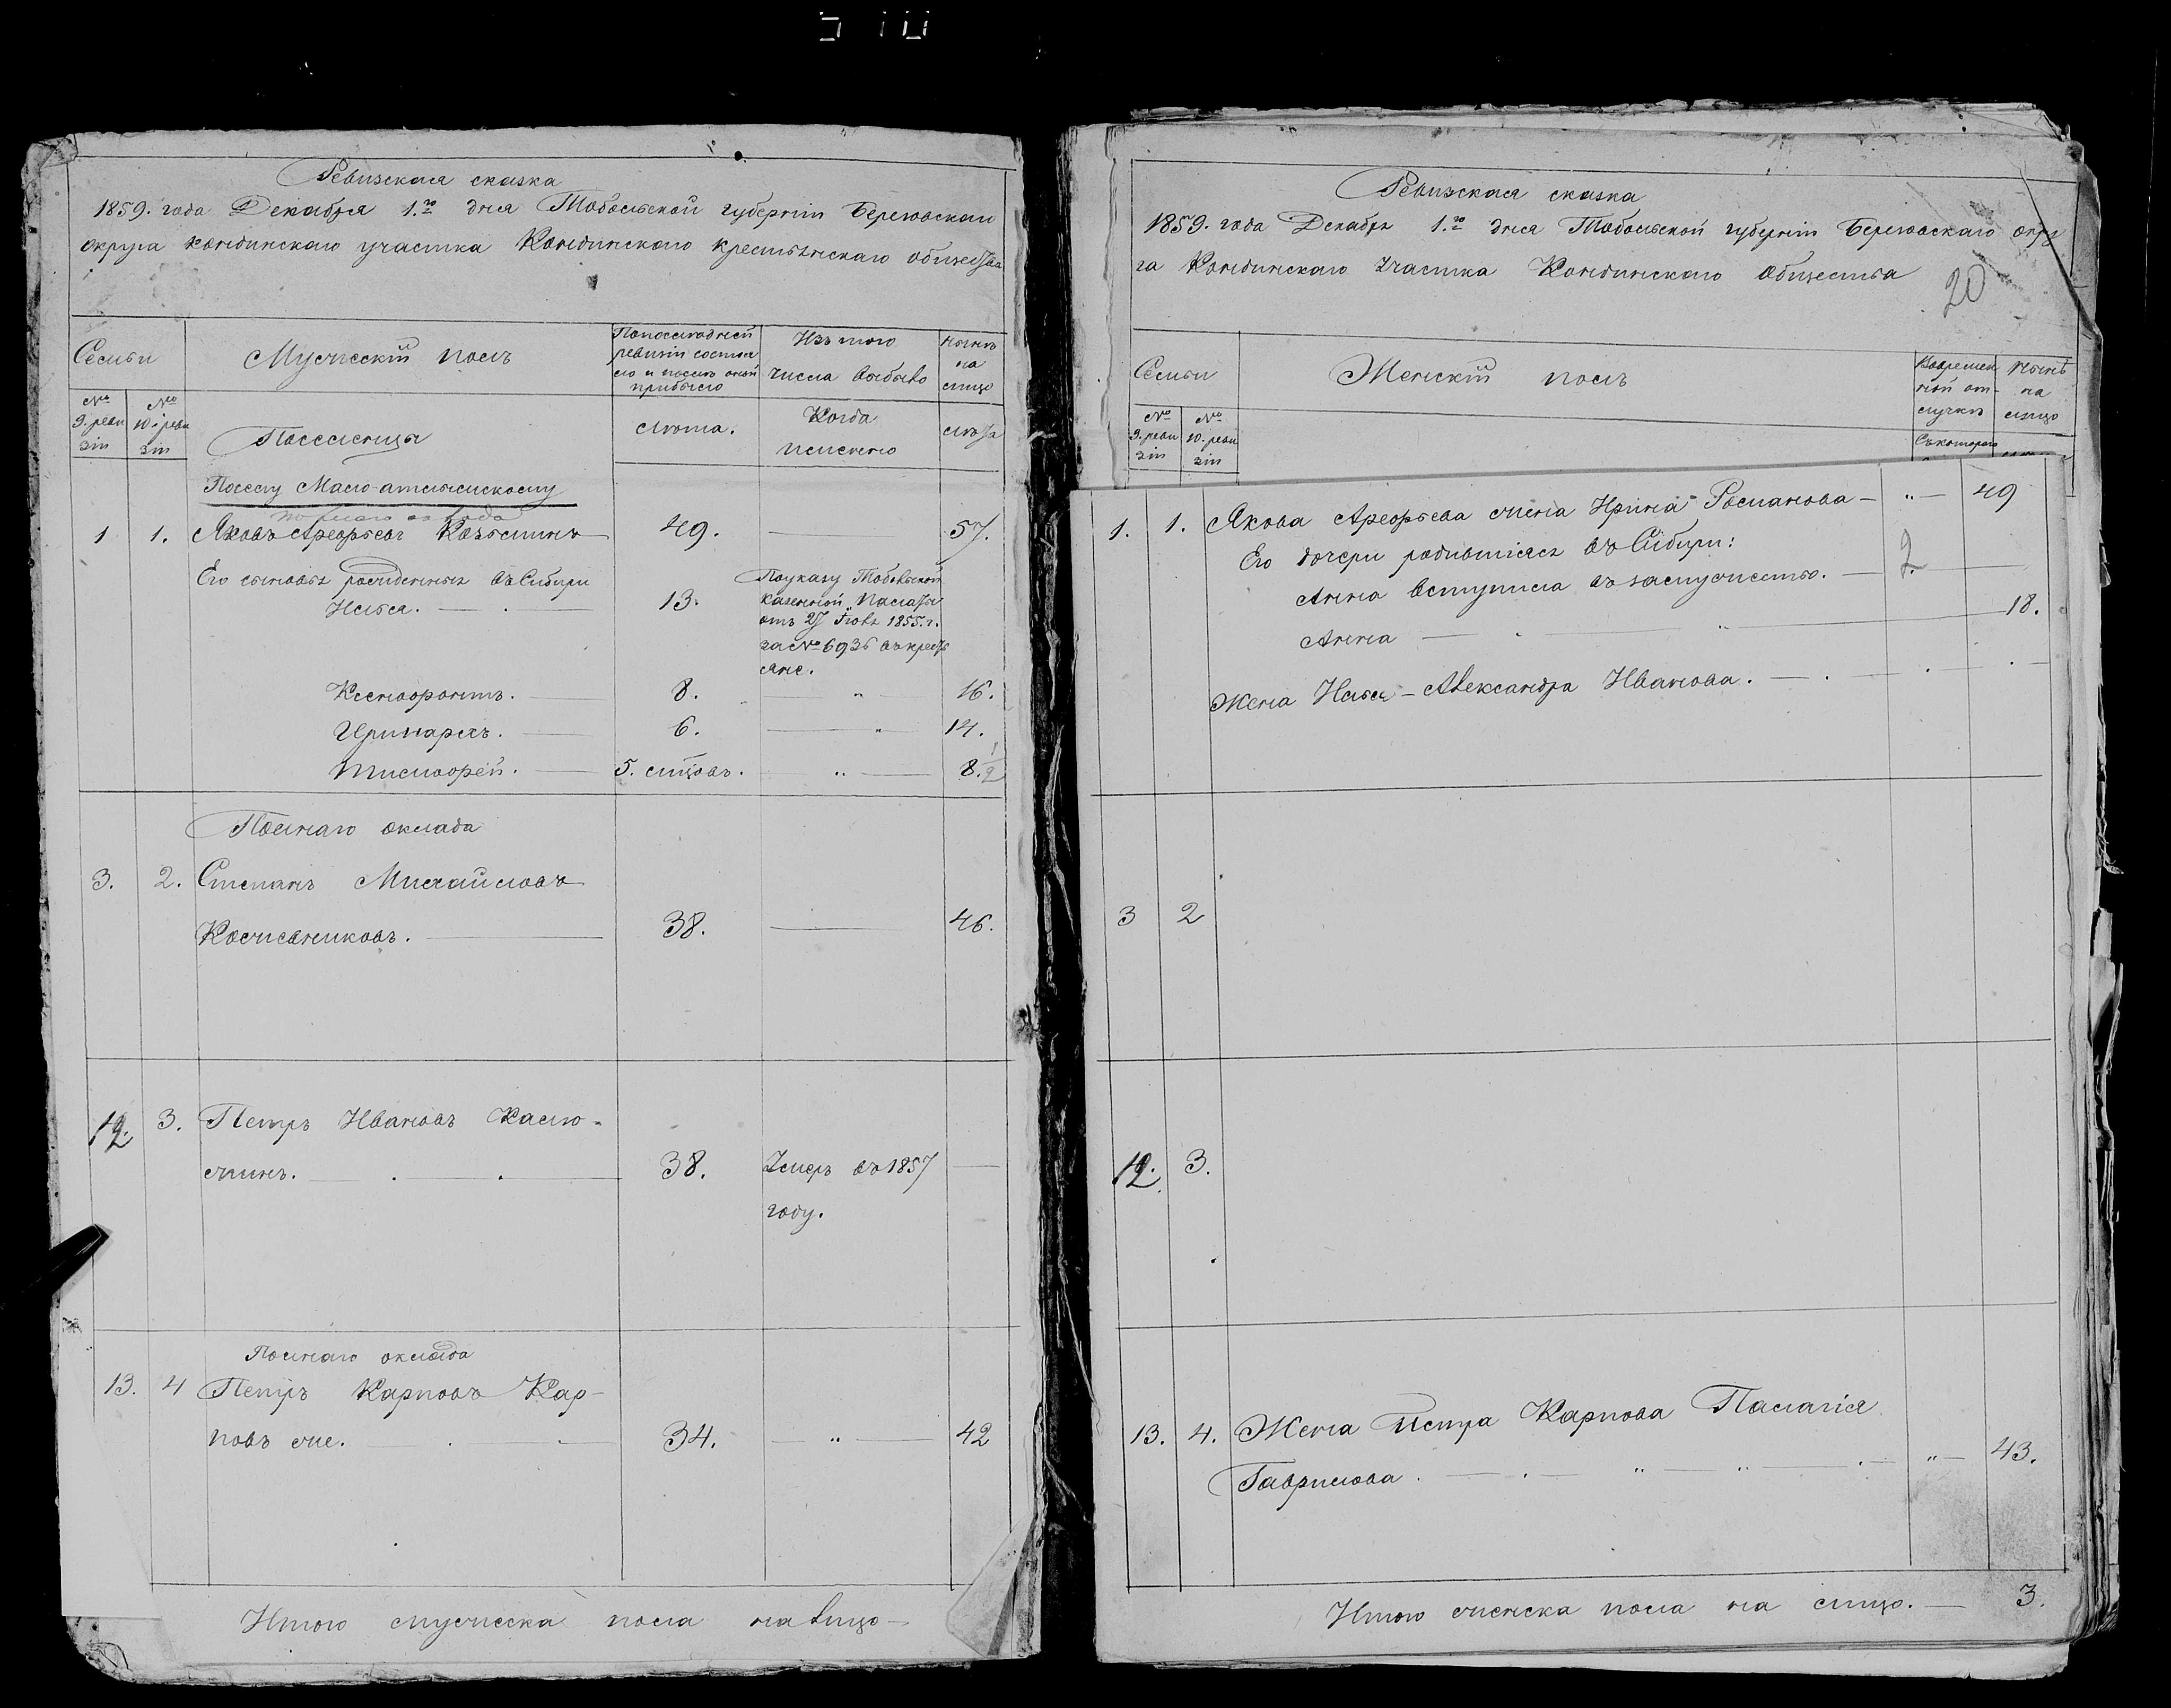 Ревизская сказка
1859. года Декабря 1.го дня Тобольской губернiи Березовскаго
округа Кондинскаго участка Кондинскаго крестьянскаго общества
Семьи
Мужескiй полъ
По последней
ревизiи состоя
ло и после оной
прибыло
Изъ того
числа выбыло
Ныне
на
лицо
№
9. реви
зiи
№
10. реви
зiи
Поселенцы
лета.
Когда
именно
лета
По селу Мало-атлымскому
полнаго оклада
1 1. Яковъ Арефьевъ Козьминъ 49. 57.
Его сыновья рожденныя въ Сибири
Илья. 13.
По указу Тобольской
казенной Палаты
отъ 27 Iюля 1855. г.
за № 6936 въ кресть
яне.
Ксенофонтъ. 8. " 16.
Иринархъ. 6. " 14.
Тимофей. 5. мцовъ. " 8. 1/2
Полнаго оклада
3. 2. Степанъ Михайловъ
Кожевниковъ. 38. 46.
12. 3. Петръ Ивановъ Калю-
жинъ. 38. Умеръ въ 1857
году.
Полнаго оклада
13. 4 Петръ Карповъ Кар-
повъ же. 34. " 42
Итого мужеска пола на лицо
Ревизская сказка
1859. года Декабря 1.го дня Тобольской губернiи Березовскаго окру
га Кондинскаго участка Кондинскаго общества
20
Семьи
Женскiй полъ
Во времен
ной от-
лучке
Ныне
на
лицо
№
9. реви
зiи
№
10. реви
зiи
Съ котораго
1. 1. Якова Арефьева жена Ирина Романова " 49
Его дочери родившiяся въ Сибири:
Анна вступила въ замужество. 2.
Анна " 18.
Жена Ильи Александра Иванова.
3 2
12. 3.
13. 4. Жена Петра Карпова Палагiя
Гаврилова. " " " 43.
Итого женска пола на лицо. 3.